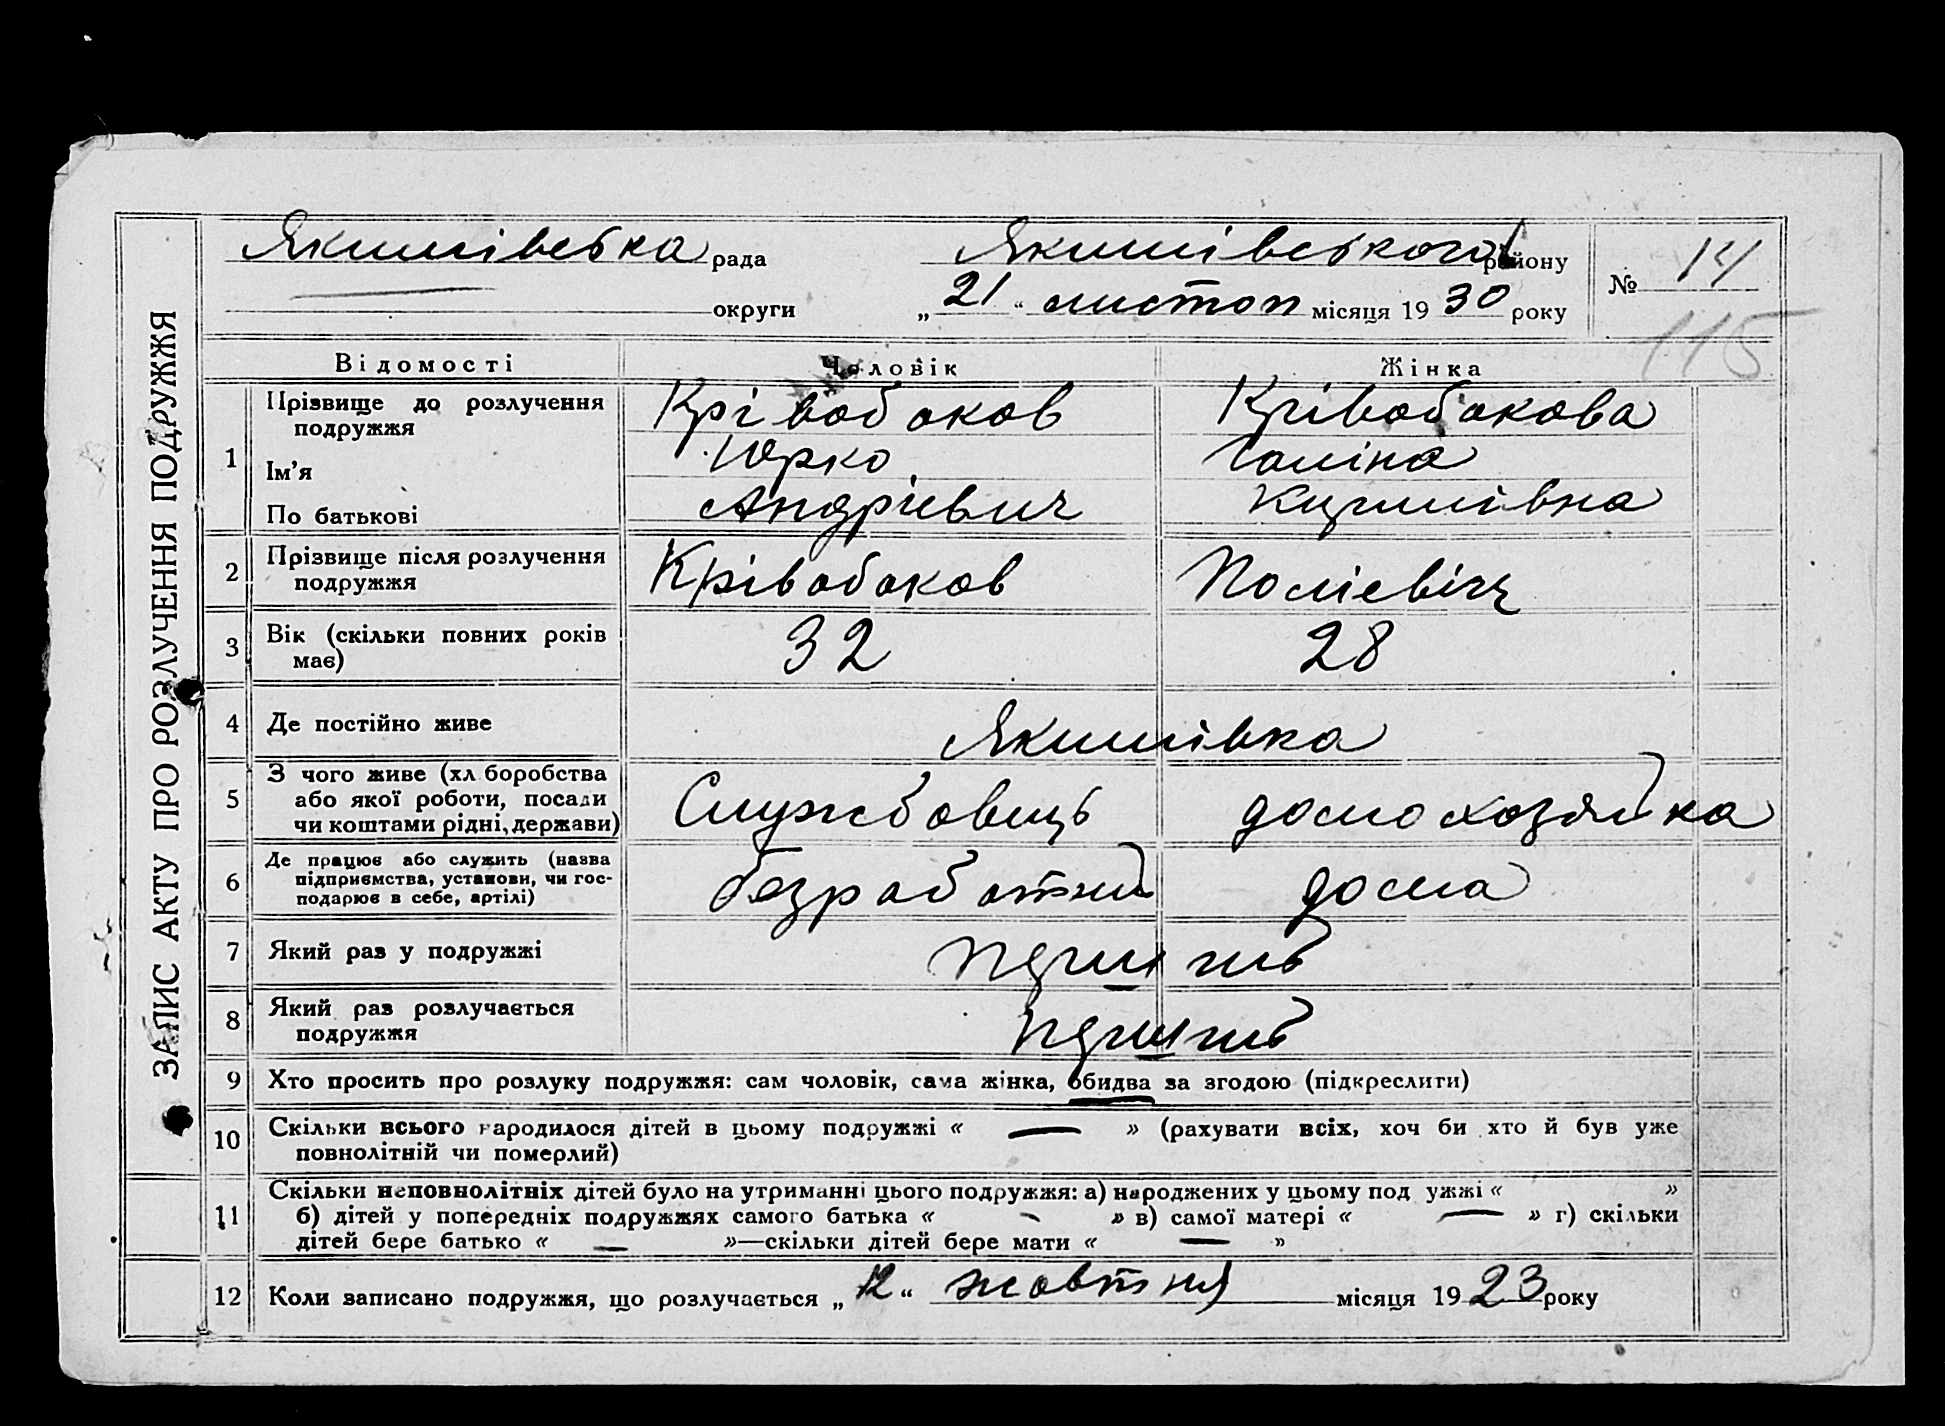 ЗАПИС АКТУ ПРО РОЗЛУЧЕННЯ ПОДРУЖЖЯ
Якимівська рада Якимівського району
округи „ 21 “ листоп місяця 19 30 року
№ 14
115
Відомості Чоловік Жінка
1 Прізвище до розлучення подружжя Крівобоков Крівобокова
Ім'я Юрко Галіна
По батькові Андрієвич Кирилівна
2 Прізвище після розлучення подружжя Крівобоков Полієвіч
3 Вік (скільки повних років має) 32 28
4 Де постійно живе Якимівка
5 З чого живе (хліборобства або якої роботи, посади чи коштами рідні, держави) Службовиць домохозяйка
6 Де працює або служить (назва підприємства, установи, чи господарює в себе, артілі) безработний дома
7 Який раз у подружжі
8 Який раз розлучається подружжя
9 Хто просить про розлуку подружжя: сам чоловік, сама жінка, обидва за згодою (підкреслити)
10 Скільки всього народилося дітей в цьому подружжі « — » (рахувати всіх, хоч би хто й був уже
повнолітній чи померлий)
11 Скільки неповнолітніх дітей було на утриманні цього подружжя: а) народжених у цьому подружжі « »
б) дітей у попередніх подружжях самого батька « — » в) самої матері « — » г) скільки
дітей бере батько « — »—скільки дітей бере мати « — »
12 Коли записано подружжя, що розлучається „ 12 “ жовтня місяця 19 23 року